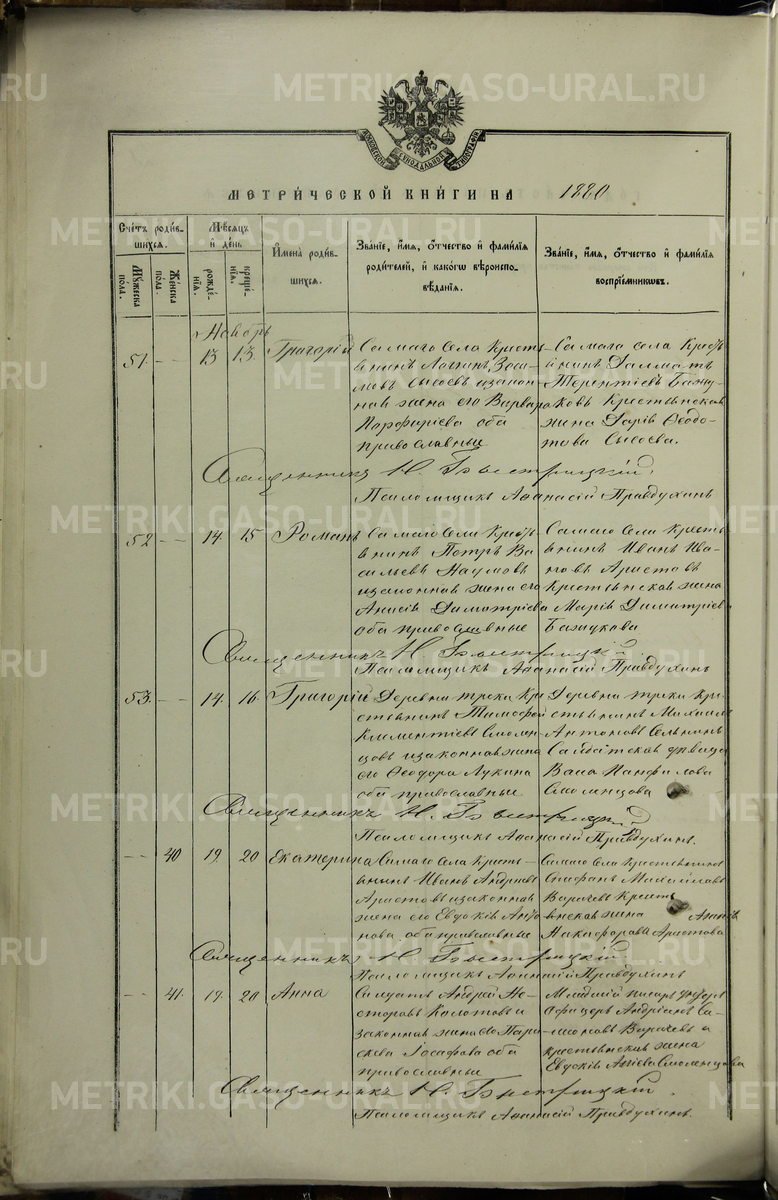 METRIKI.GASO-URAL.RU
МОСКОВСКОЙ СѴНОДАЛЬНОЙ ТИПОГРАФІИ
МЕТРИ́ЧЕСКОЙ КНИ́ГИ НА 1880
Сче́тъ роди́вшихся.
Мѣ́сяцъ и́ де́нь
И҆мена̀ роди́вшихся.
Зва́нїе, и҆́мя, ѻ҆́тчество и҆ фами́лїя роди́телей, и҆ како́гѡ вѣроисповѣ́данїя.
Зва́нїе, и҆́мя, ѻ҆́тчество и҆ фами́лїя воспрїе́мникѡвъ.
Мꙋ́жеска по́ла.
Же́нска по́ла.
рожде́нїя.
креще́нїя.
Наборь
51. — 13 13. Григорій
Самаго Села Кресть-
янинъ Логинъ Зоси-
мовъ Сысоевъ изакон-
ная жена его Варвара
Порфиріева оба
православные
Самаго села Крестъ
янинъ Далматъ
Терентіевъ Бажу-
ковъ Крестьянская
жена Дарія Ѳеодо-
това Сысоева.
Священникъ Н. Быстрицкій.
Псаломщикъ Аѳанасій Правдухинъ
52 — 14. 15 Романъ
Самаго Села Кресть
янинъ Петръ Ва-
сильевъ Наумовъ
изаконная жена его
Анисія Димитріева
оба православные
Самаго Села Кресть
янинъ Иванъ Ива-
новъ Аристовъ
Крестьянская жена
Марія Димитріева
Бажукова
Священникъ Н. Быстрицкій.
Псаломщикъ Аѳанасій Правдухинъ
53. — 14. 16. Григорій
Деревни трёки Кре
стьянинъ Тимоѳей
Климентіевъ Смолен-
цовъ изаконная жена
его Ѳеодора Лукина
оба православные
Деревни трёки Кре-
стьянинъ Михаилъ
Антоновъ
Солдатская
Панфилова
Смоленцова
Священникъ Н. Быстрицкій
Псаломщикъ Аѳанасій Правдухинъ.
— 40 19. 20 Екатерина
Самаго Села Кресть-
янинъ Иванъ Андреевъ
Аристовъ изаконная
жена его Евдокія Анто
нова оба православные
Самаго Села Крестьянинъ
Стефанъ Михайловъ
Варачевъ Кресть
янская жена Анна
Никифорова Аристова
Священникъ Н. Быстрицкій
Псаломщикъ Аѳанасій Правдухинъ
— 41. 19. 20 Анна
Солдатъ Андрей Не-
сторовъ Колотовъ и
законная жена его Пара
скева Іоасафова оба
православные
Младшій писарь унтеръ
Офицеръ Андріанъ Си-
моновъ Варачевъ и
крестьянская жена
Евдокія Смоленцова
Священникъ Н. Быстрицкій.
Псаломщикъ Аѳанасій Правдухинъ.